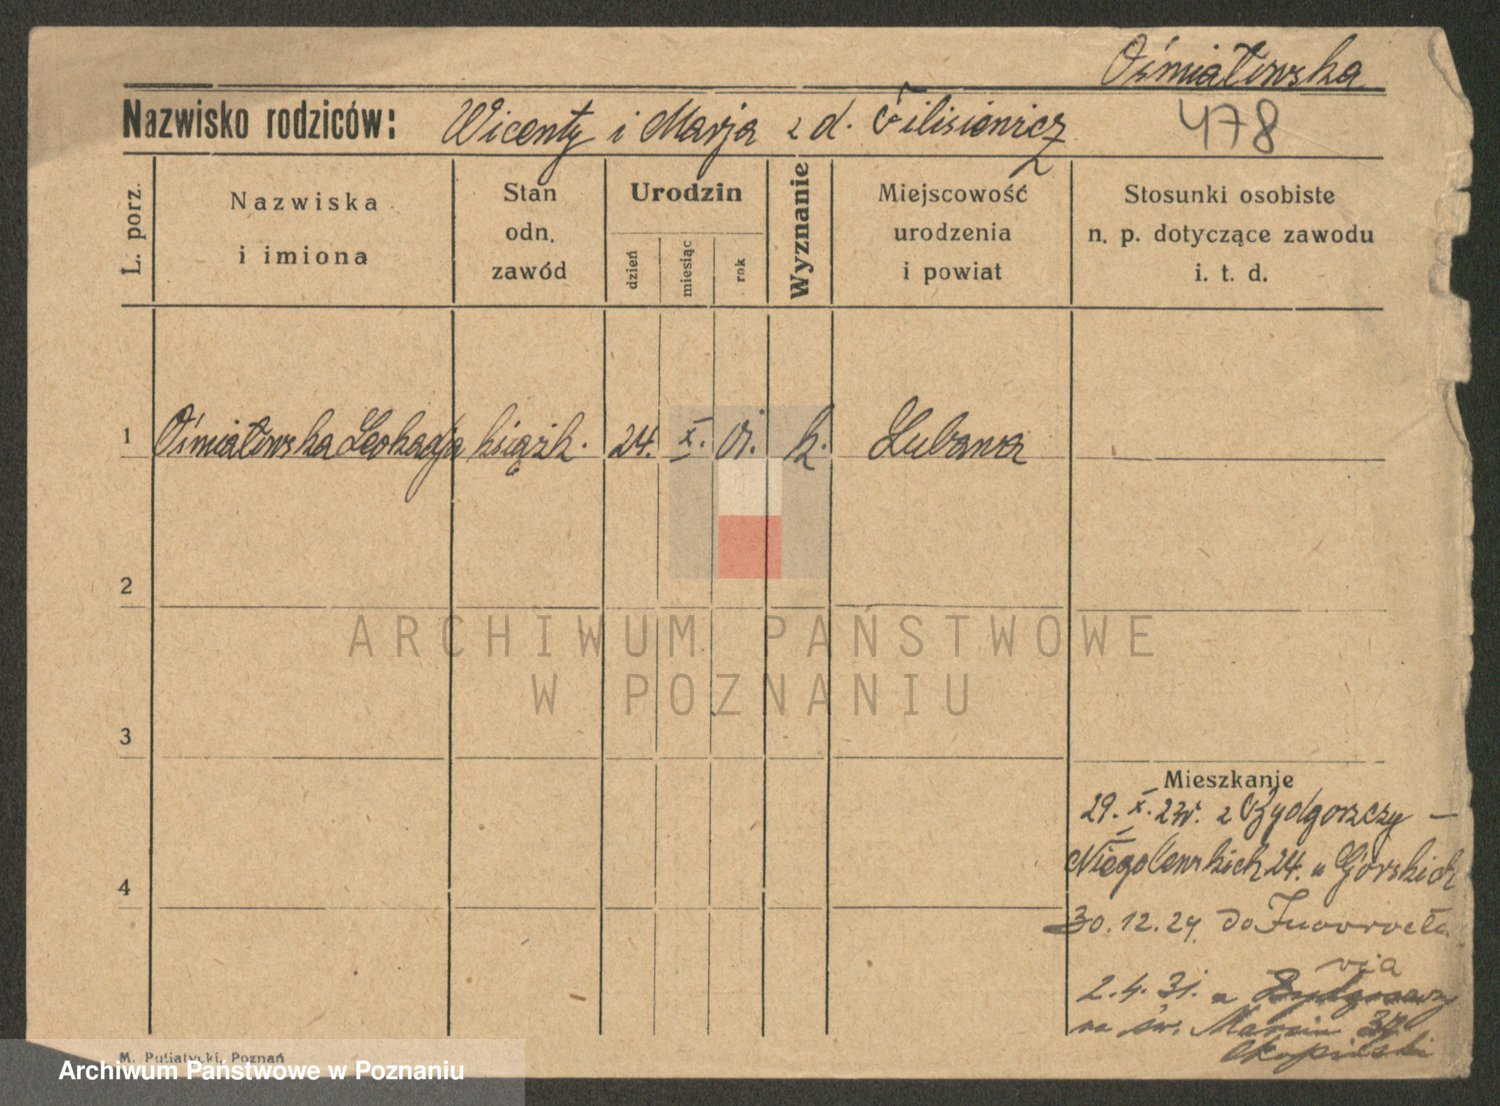 Ośmiałowska
Nazwisko rodziców: Wicenty i Marja z d. Filisiewicz
478
L. porz.
Nazwiska
i imiona
Stan
odn.
zawód
Urodzin
dzień
miesiąc
rok
Wyznanie
Miejscowość
urodzenia
i powiat
Stosunki osobiste
n. p. dotyczące zawodu
i. t. d.
1 Ośmiałowska Leokadja książk. 24. X. 01. k. Lubawa
2
ARCHIWUM PAŃSTWOWE
W POZNANIU
3
Mieszkanie
29. X. 23r. z Bydgoszczy —
4
Niegolewskich 24. u Górskich
30.12.24 do Inowrocła
wia
2.4.31. z Bydgoszczy
na św. Marcin 37
M. Putiatycki, Poznań
Archiwum Państwowe w Poznaniu